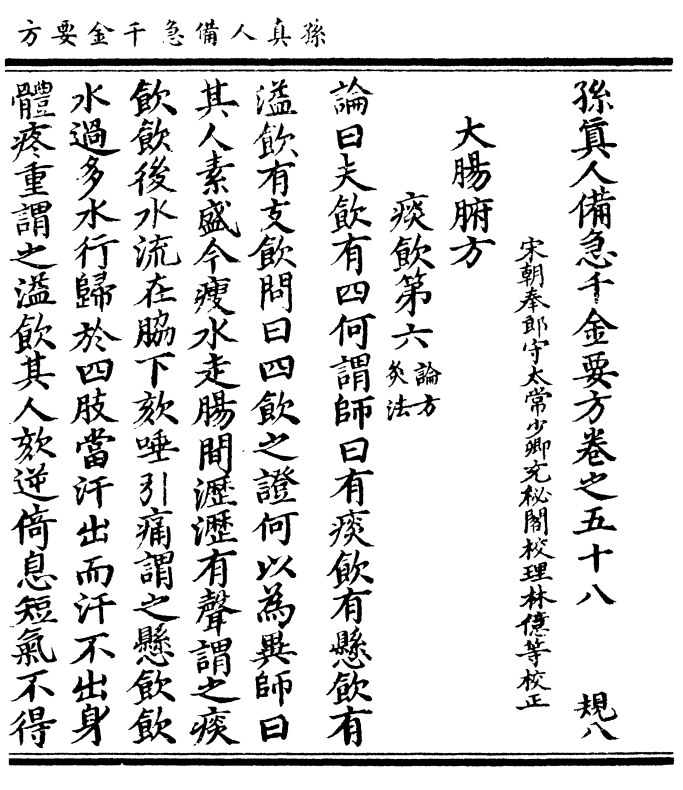 孫真人備急千金要方
孫真人備急千金要方卷之五十八　規八
宋朝奉郎守太常少卿充秘閣校理林億等校正
大腸腑方
痰飲第六　論方　灸法
論曰夫飲有四何謂師曰有痰飲有懸飲有
溢飲有支飲問曰四飲之證何以為異師曰
其人素盛今瘦水走腸間瀝瀝有聲謂之痰
飲飲後水流在脇下欬唾引痛謂之懸飲飲
水過多水行歸於四肢當汗出而汗不出身
體疼重謂之溢飲其人欬逆倚息短氣不得